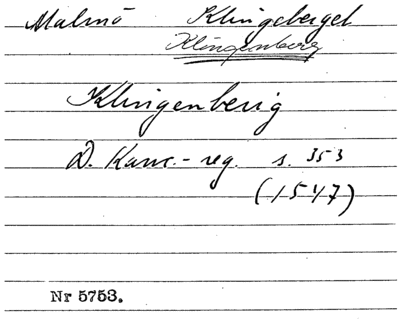 Malmö Klingeberget
Klingenberg
Klingenberig
D. Kanc.-reg. s. 353
(1547)
Nr 5753.